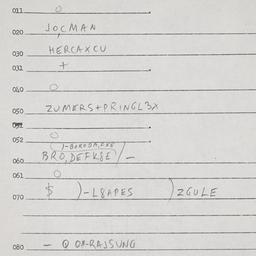 011 O
020 JOÇMAN
030 HERCAXCU
031 +
040 O
050 ZUMERS+PRINGL3X
051
052 O
)-BORODA,EXE
060 BRO,DEFKSE)/ –
061 O
070 $ )-L8APES )ZGULE
080 – Q OX-RAJSUNG